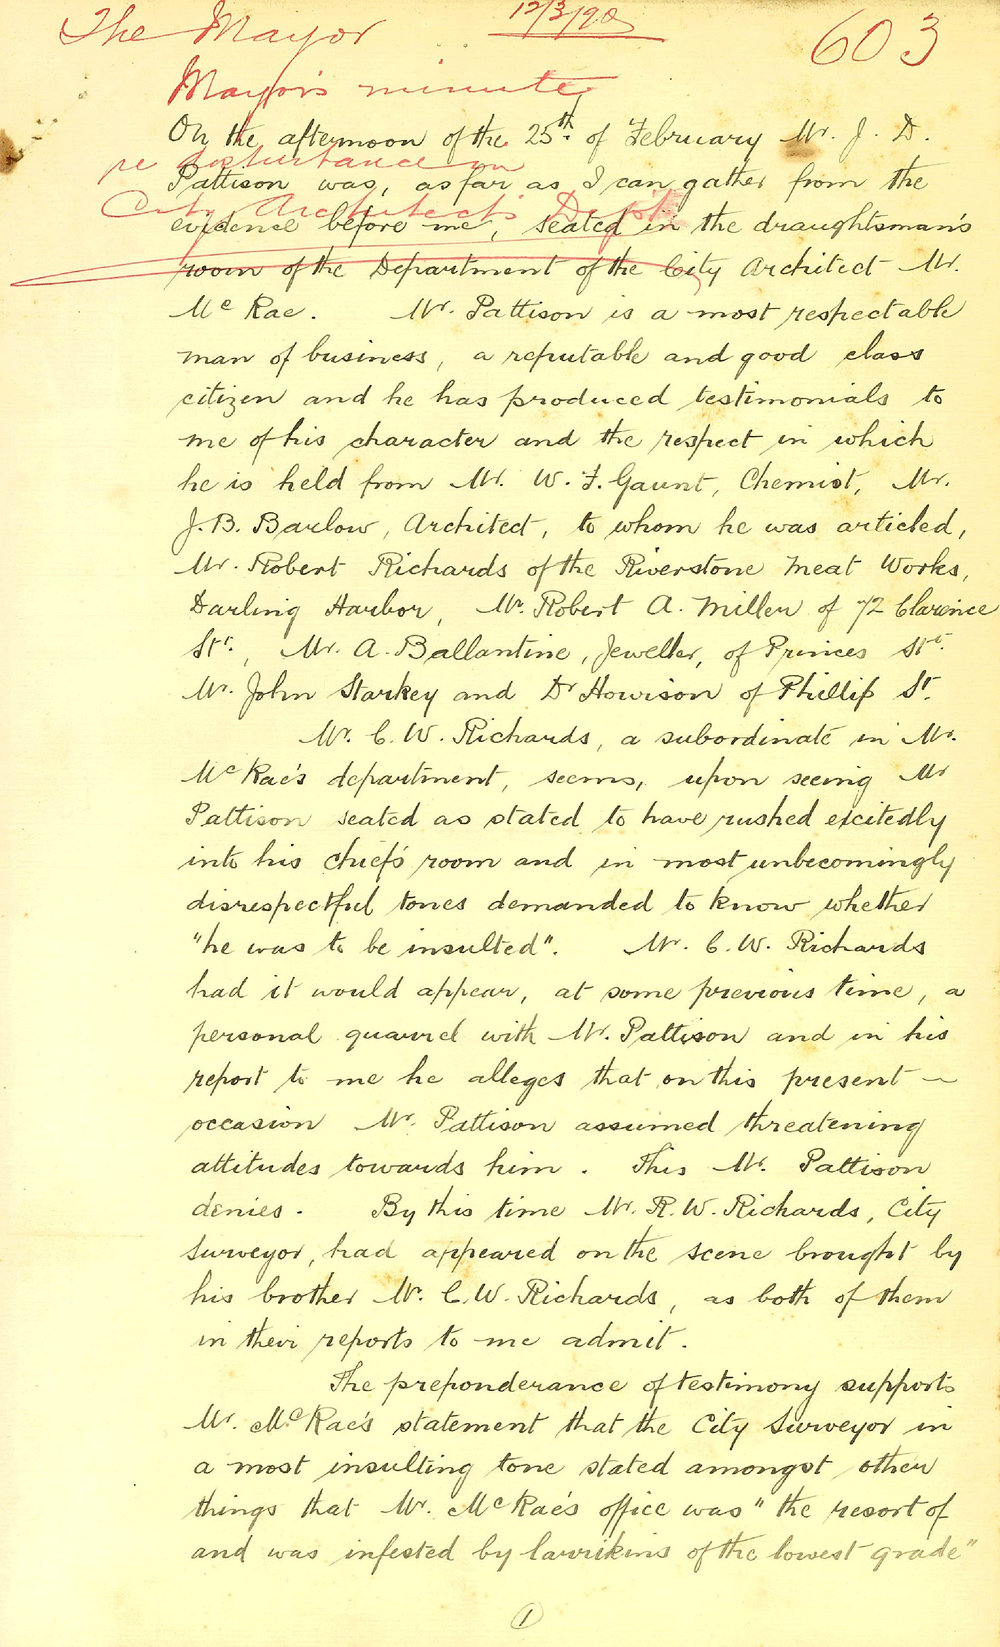 The Mayor
12/3/98
603
Mayor's minute
On the afternoon of the 25th. of February Mr. J. D.
re disturbance in
Pattison was, as far as I can gather from the
City Architect's Dept
evidence before me, seated in the draughtsman's
room of the Department of the City Architect Mr.
Mc Rae. Mr. Pattison is a most respectable
man of business, a reputable and good class
citizen and he has produced testimonials to
me of his character and the respect in which
he is held from Mr. W. F. Gaunt, Chemist, Mr.
J. B. Barlow, Architect, to whom he was articled,
Mr. Robert Richards of the Riverstone Meat Works,
Darling Harbor, Mr. Robert A. Miller of 72 Clarence
Str., Mr. A. Ballantine, Jeweller, of Princes Str.
Mr. John Starkey and Dr Howison of Phillip St.
Mr. C. W. Richards, a subordinate in Mr.
McRae's department, seems, upon seeing Mr
Pattison seated as stated to have rushed excitedly
into his chief's room and in most unbecomingly
disrespectful tones demanded to know whether
"he was to be insulted". Mr. C. W. Richards
had it would appear, at some previous time, a
personal quarrel with Mr. Pattison and in his
report to me he alleges that on this present —
occasion Mr. Pattison assumed threatening
attitudes towards him. This Mr. Pattison
denies. By this time Mr. R. W. Richards, City
Surveyor, had appeared on the scene brought by
his brother Mr. C. W. Richards, as both of them
in their reports to me admit.
The preponderance of testimony supports
Mr. McRae's statement that the City Surveyor in
a most insulting tone stated amongst other
things that Mr. McRae's office was "the resort of
and was infested by larrikins of the lowest grade"
1